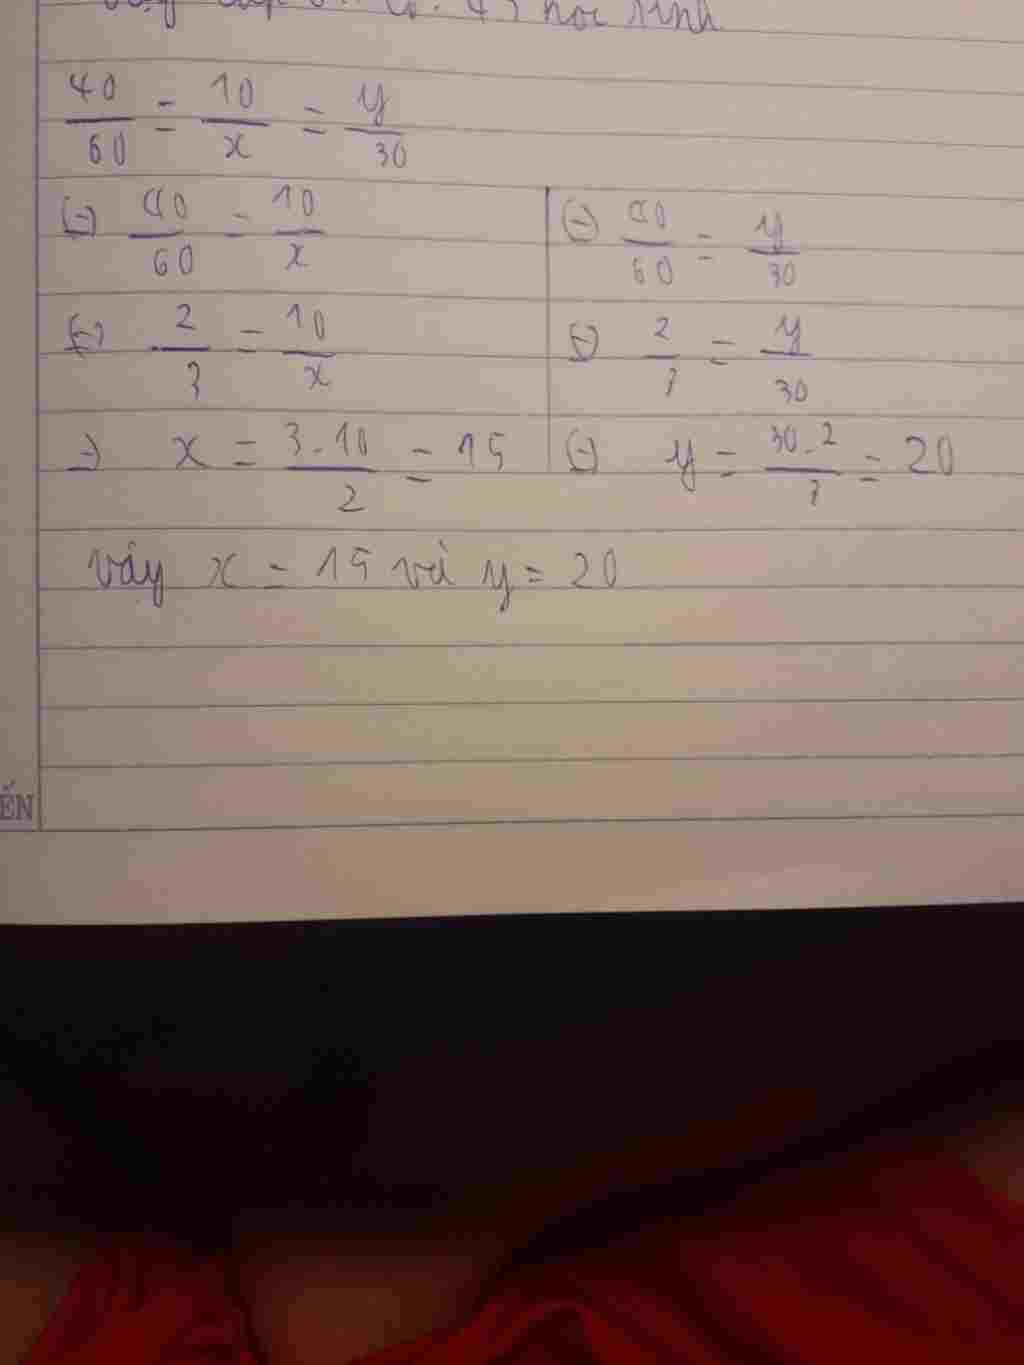 học sinh
40/60 = 10/x = y/30
(=) 40/60 = 10/x
(=) 2/3 = 10/x
=) x = 3.10/2 = 15
(=) 40/60 = y/30
(=) 2/3 = y/30
(=) y = 30.2/3 = 20
vậy x = 15 và y = 20
ẾN